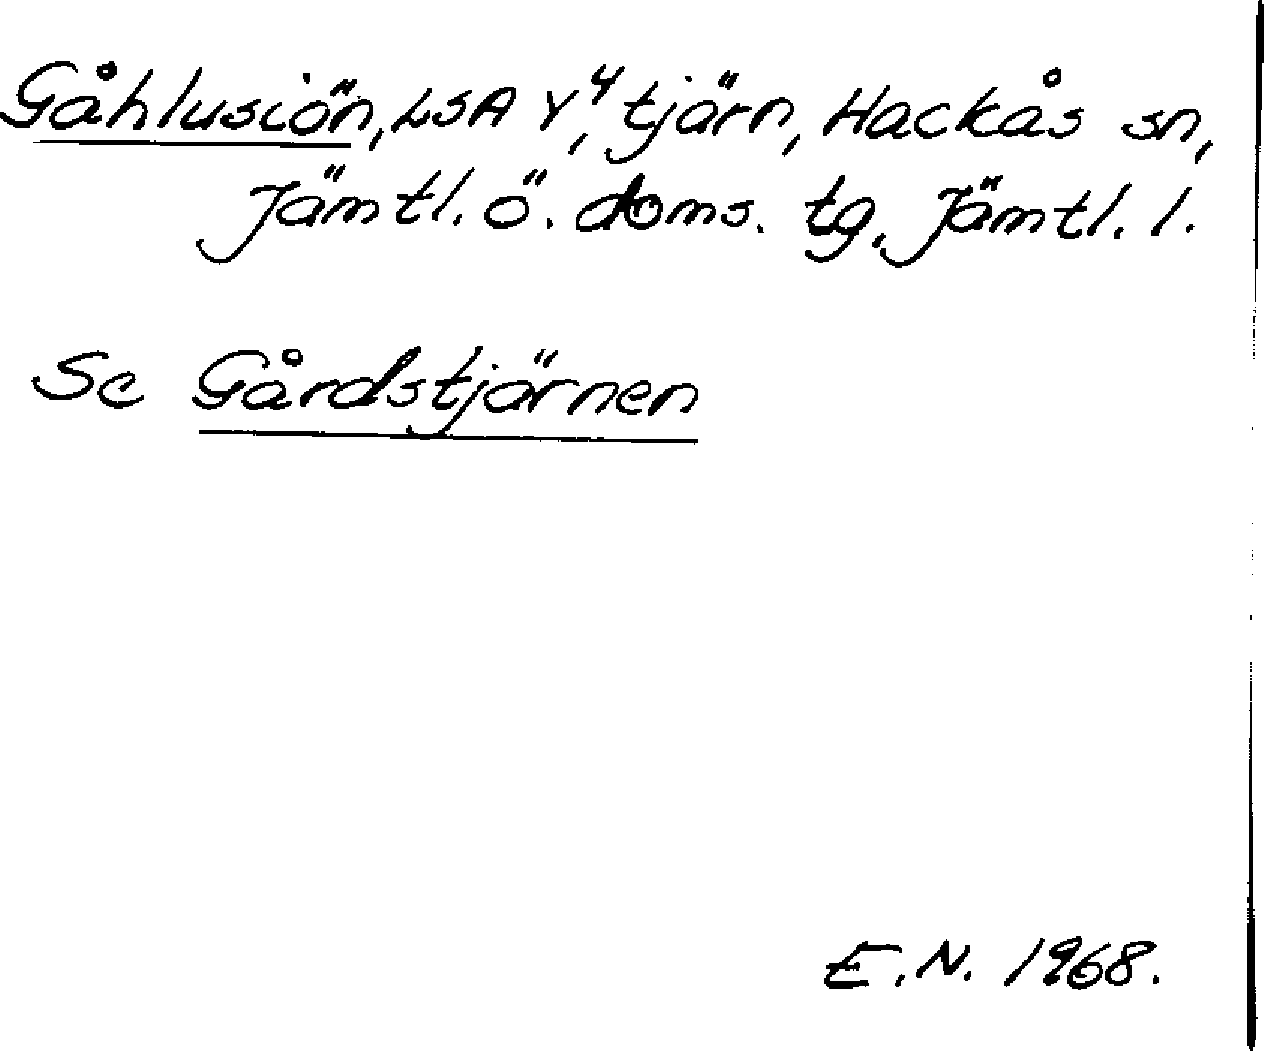 Gåhlusiön, LSA Y⁴, tjärn, Hackås sn,
Jämtl. ö. doms. tg, Jämtl. l.
Se Gårdstjärnen
E.N. 1968.